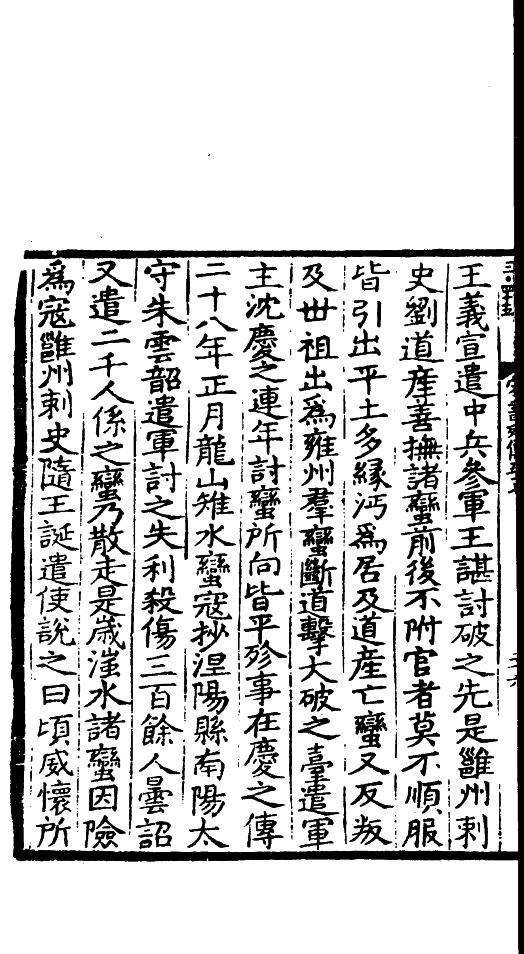 王義宣遣中兵參軍王諶討破之先是雝州刺
史劉道産善撫諸蠻前後不附官者莫不順服
皆引出平土多緣沔爲居及道産亡蠻又反叛
及世祖出爲雍州羣蠻斷道擊大破之臺遣軍
主沈慶之連年討蠻所向皆平殄事在慶之傳
二十八年正月龍山雉水蠻寇抄涅陽縣南陽太
守朱雲韶遣軍討之失利殺傷三百餘人曇韶
又遣二千人係之蠻乃散走是歲滍水諸蠻因險
爲寇雝州刺史隨王誕遣使説之曰頃威懷所